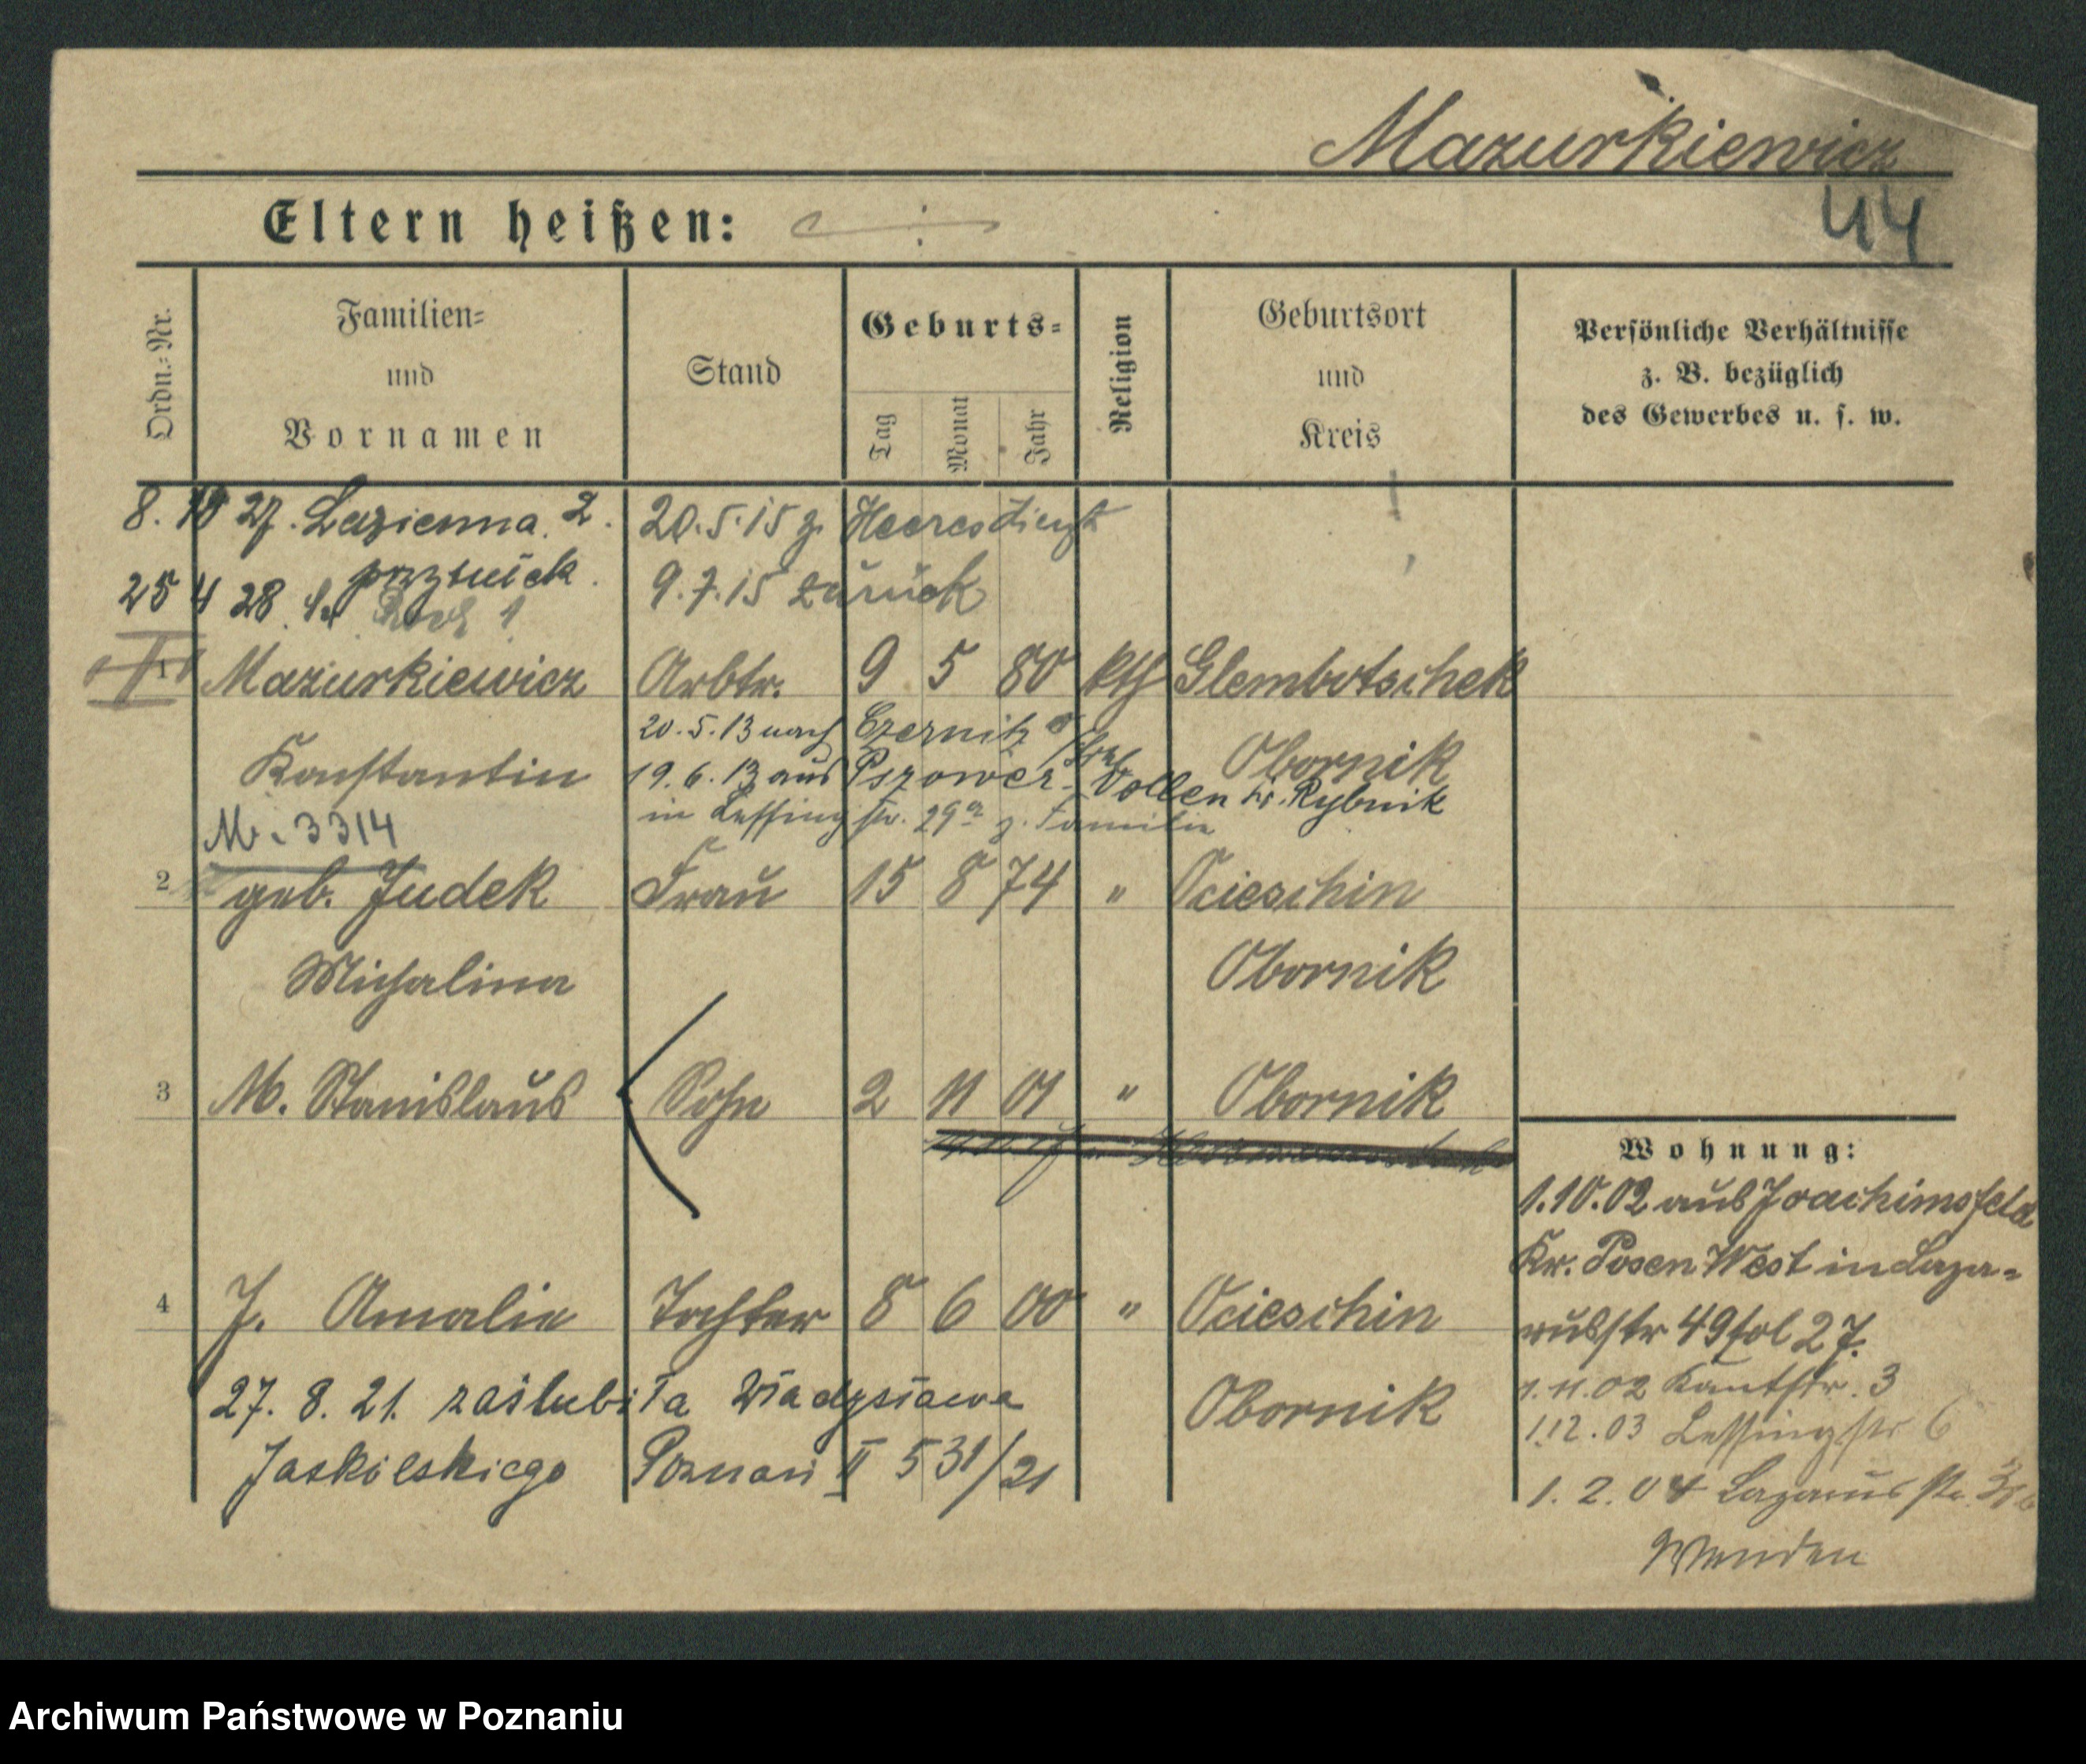 Mazurkiewicz
44
Eltern heißen:
Ordn.-Nr.
Familien-
und
Vornamen
Stand
Geburts-
Tag
Monat
Jahr
Religion
Geburtsort
und
Kreis
Persönliche Verhältnisse
z. B. bezüglich
des Gewerbes u. s. w.
8. 10 27. Lazienna 2.
20.5.15 z. Heeresdienst
przytulisk.
25 4 28
9.7.15 zurück
1 Mazurkiewicz Arbtr. 9 5 80 kth Glembotschek
20.5.13 nach Czernitz
Konstantin
Obornik
19.6.13 aus Pszower-Dollen Kr. Rybnik
in Lessingstr. 29a z. Familie
M. 3314
2 geb. Judek Frau 15 8 74 " Ocieschin
Michalina Obornik
3 M. Stanislaus Sohn 2 11 01 " Obornik
4 J. Amalie Tochter 8 6 00 " Ocieschin
Obornik
27. 8. 21. zaślubiła Władysława
Jaskólskiego Poznań II 531/21
Wohnung:
1.10.02 aus Joachimsfeld
Kr. Posen West in Laza-
russtr 49 fol 27.
1.11.02 Kantstr. 3
1.12.03 Lessingstr 6
1.2.04 Lazarusstr.
Wenden
Archiwum Państwowe w Poznaniu